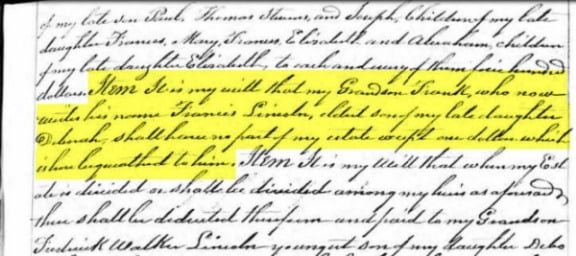 of my late son Paul, Thomas Stevens, and Joseph, Children of my late
daughter Frances, Mary, Frances, Elizabeth and Abraham, children
of my late daughter Elizabeth, to each and every of them five hundred
dollars. Item It is my will that my Grandson Frank, who now
writes his name Francis Lincoln, eldest son of my late daughter
Deborah, shall have no part of my estate except one dollar which
is here bequeathed to him. Item It is my Will that when my Est
ate is divided or shall be divided among my heirs as aforesaid
there shall be deducted therefrom and paid to my Grandson
Frederick Walker Lincoln youngest son of my daughter Debo